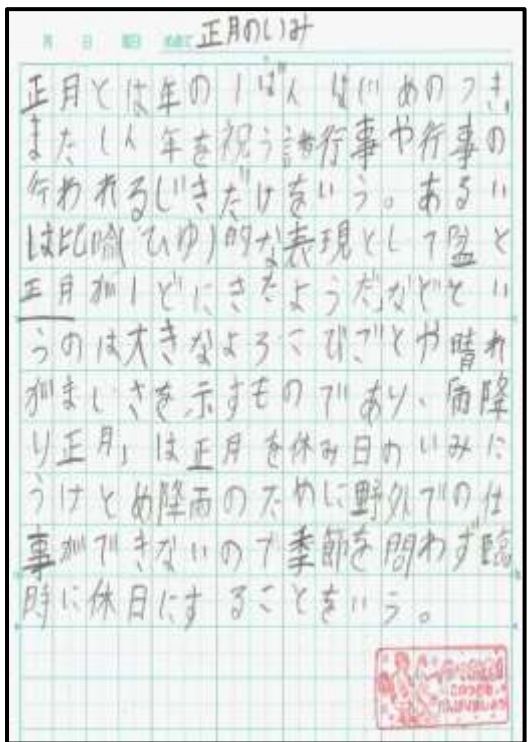 月 日 曜日 めあて 正月のいみ
正月とは年の1ばんはじめのつき
またしん年を祝う諸行事や行事の
行われるじきだけをいう。あるい
は比喩(ひゆ)的な表現として盆と
正月が1どにきたようだ」などとい
うのは大きなよろこびごとや晴れ
がましさを示すものであり、「雨降
り正月」は正月を休み日のいみに
うけとめ降雨のために野外での仕
事ができないので季節を問わず臨
時に休日にすることをいう。
このつぎも
がんばりましょう